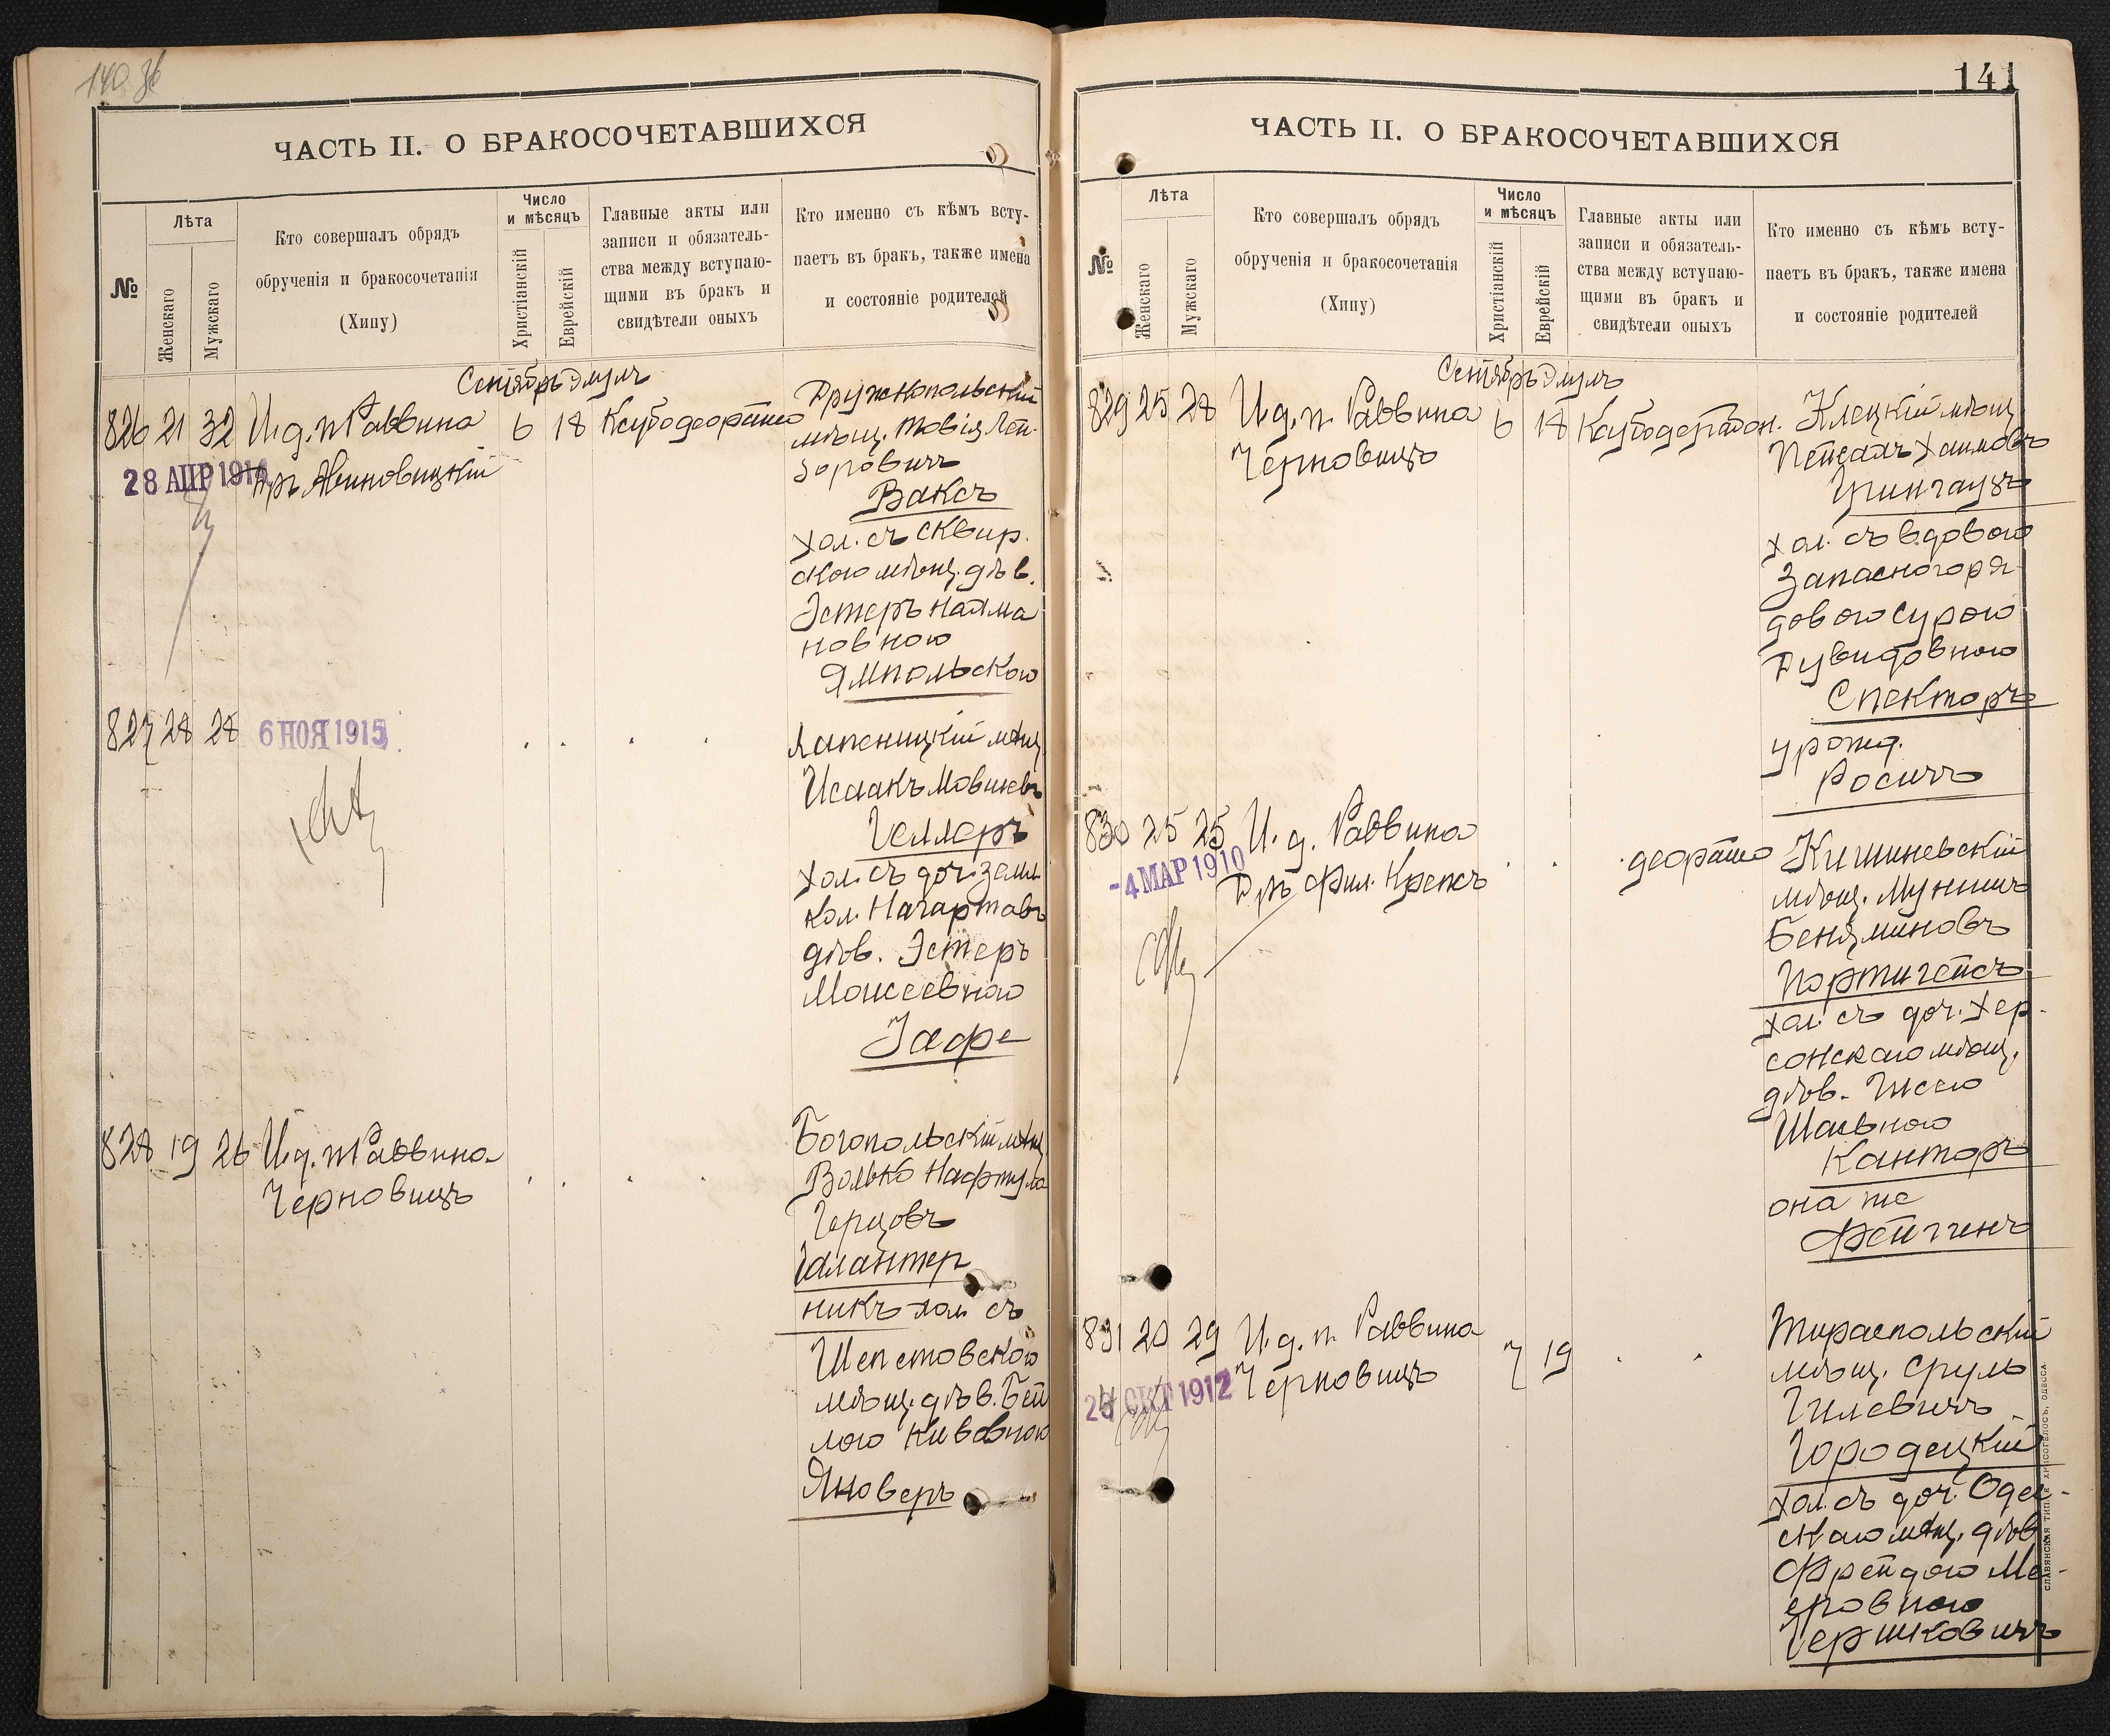 140 зв
ЧАСТЬ II. О БРАКОСОЧЕТАВШИХСЯ
№
Лѣта
Женскаго
Мужскаго
Кто совершалъ обрядъ
обрученія и бракосочетанія
(Хипу)
Число
и мѣсяцъ
Христіанскій
Еврейскій
Главные акты или
записи и обязатель-
ства между вступаю-
щими въ бракъ и
свидѣтели оныхъ
Кто именно съ кѣмъ всту-
паетъ въ бракъ, также имена
и состояніе родителей
Сентябрь Элулъ
826 21 32 И.д.п Раввина 6 18
28 АПР 1914
Дръ Авиновицкій
Дружкопольскій
мѣщ. Товія Лей-
зоровичъ
Ваксъ
хол. съ сквир.
скою мѣщ. дѣв.
Эстеръ Найма
новною
Ямпольскою
827 28 28
6 НОЯ 1915
Лапеницкій мѣщ.
Исаакъ Мовшевъ
Геллеръ
хол. съ доч. земл.
кол. Нагартавъ
дѣв. Эстеръ
Моисеевною
Зафе
828 19 26 И.д.п Раввина
Черновицъ
Богопольскій мѣщ.
Волько Нафтула
Герцовъ
Галантер
никъ хол. съ
Шепетовскою
мѣщ. дѣв. Бей
лою Кивовною
Яноверъ
141
ЧАСТЬ II. О БРАКОСОЧЕТАВШИХСЯ
№
Лѣта
Женскаго
Мужскаго
Кто совершалъ обрядъ
обрученія и бракосочетанія
(Хипу)
Число
и мѣсяцъ
Христіанскій
Еврейскій
Главные акты или
записи и обязатель-
ства между вступаю-
щими въ бракъ и
свидѣтели оныхъ
Кто именно съ кѣмъ всту-
паетъ въ бракъ, также имена
и состояніе родителей
Сентябрь Элулъ
829 25 28 И.д.п. Раввина 6 18
Черновицъ
Клецкій мѣщ.
Пейсахъ Хаимовъ
Грингаузъ
хол. съ вдовою
Запасного ря-
дового Сурою
Дувидовною
Спекторъ
урожд.
Росичъ
830 25 25 И. д. Раввина
-4 МАР 1910
Дръ Фил. Крепсъ
Кишиневскій
мѣщ. Мунишъ
Беняминовъ
Портигейсъ
хол. съ доч. Хер-
сонскаго мѣщ.
дѣв. Гисею
Шаевною
Канторъ
она же
Фейгинъ
831 20 29 И.д.п. Раввина 7 19
ОКТ 1912
Черновицъ
Тираспольскій
мѣщ. Сруль
Гилевичъ
Городецкій
хол. съ доч. Одес-
скаго мѣщ. дѣв.
Фрейдою Ме-
еровною
Гершковичъ
СЛАВЯНСКАЯ ТИП. Е. ХРИСОГЕЛОСЪ, ОДЕССА